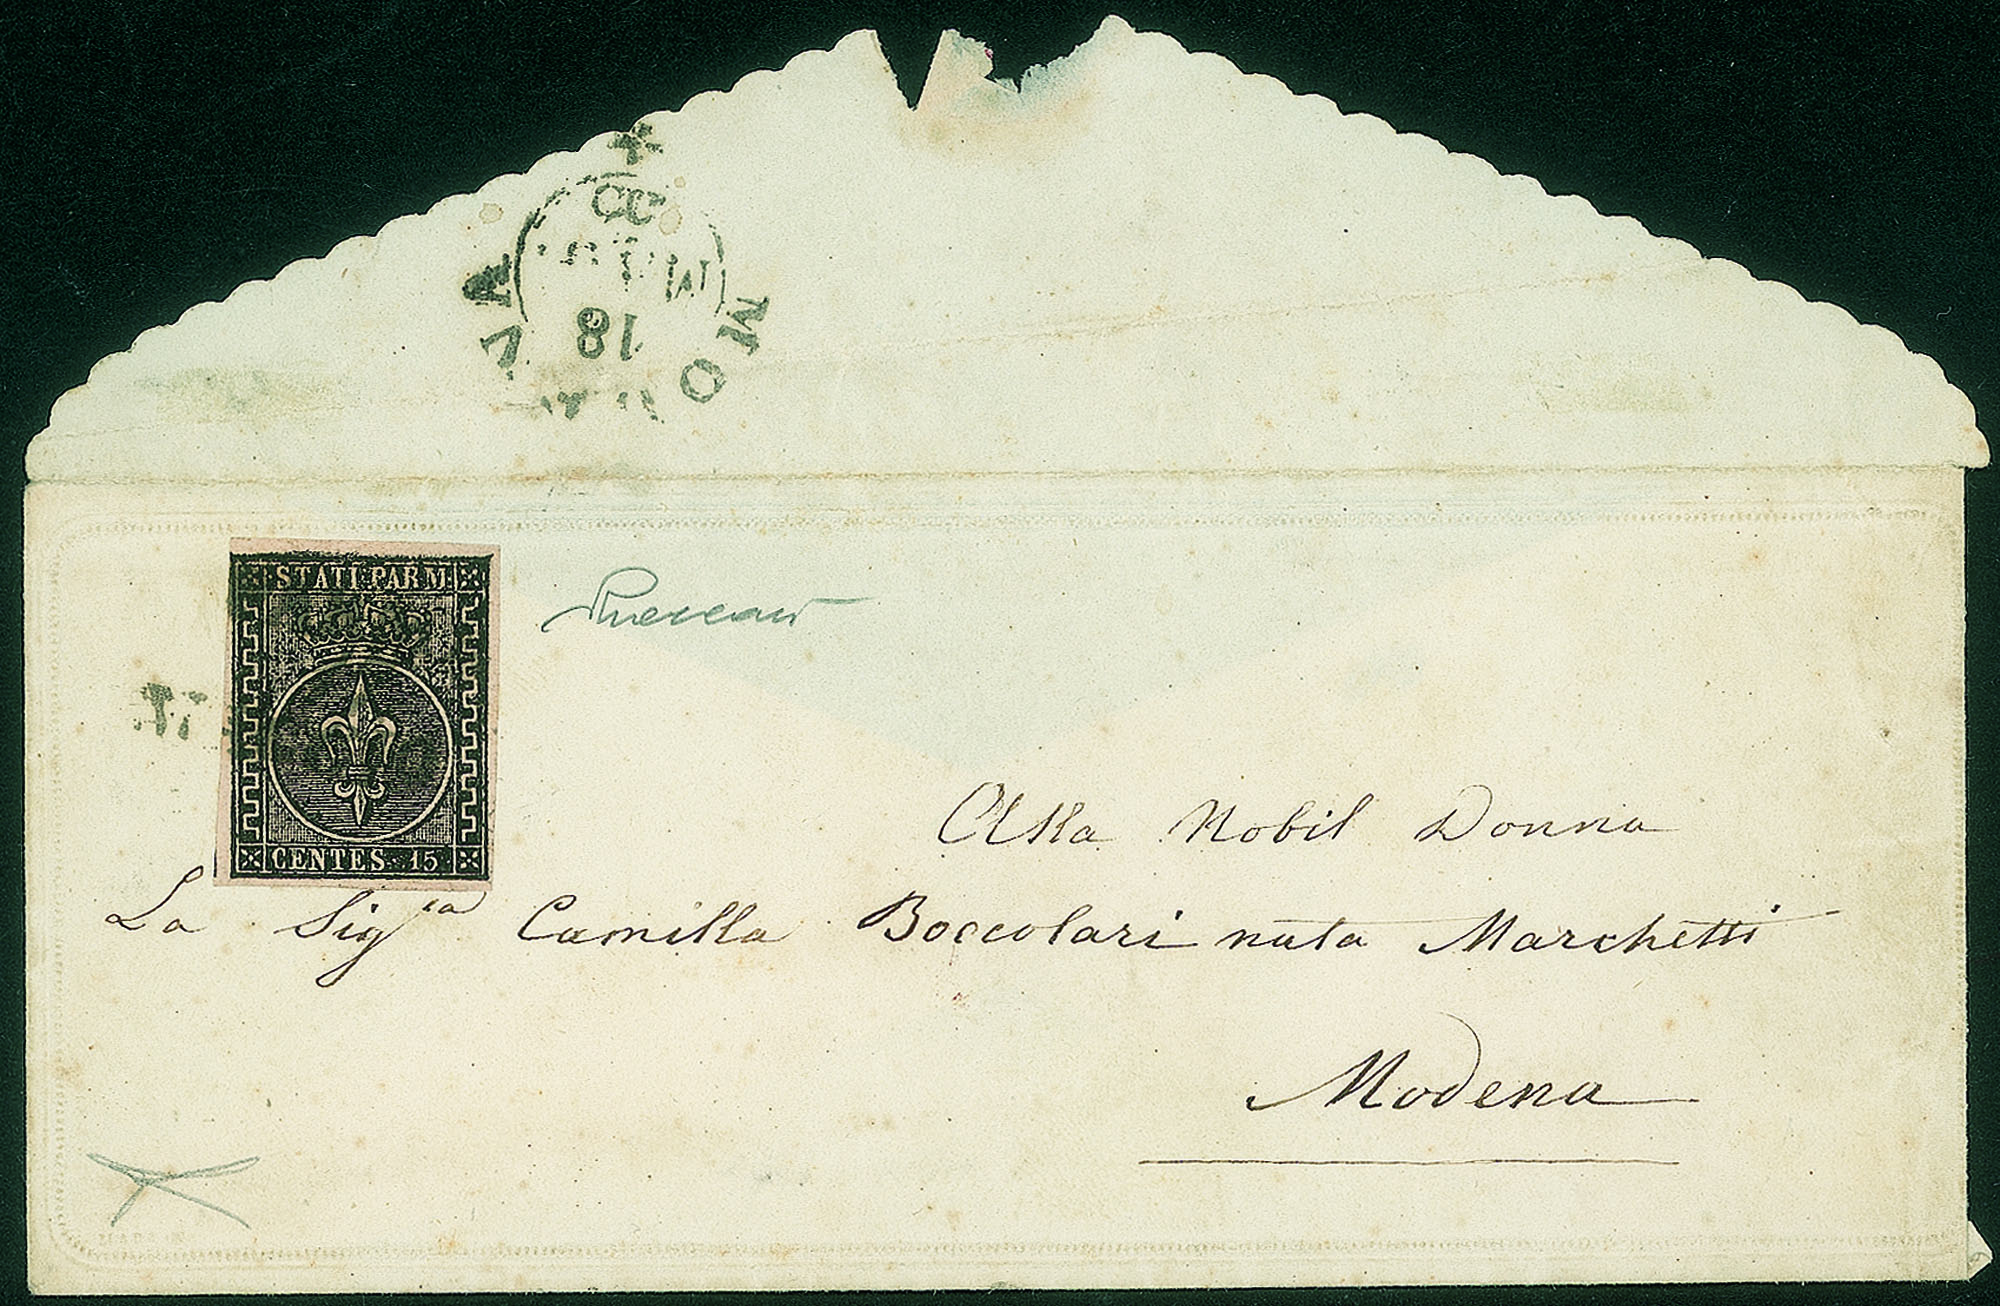 18
STATI PARM.
CENTES. 15
Alla Nobil Donna
La Sig.ra Camilla Boccolari nata Marchetti
Modena